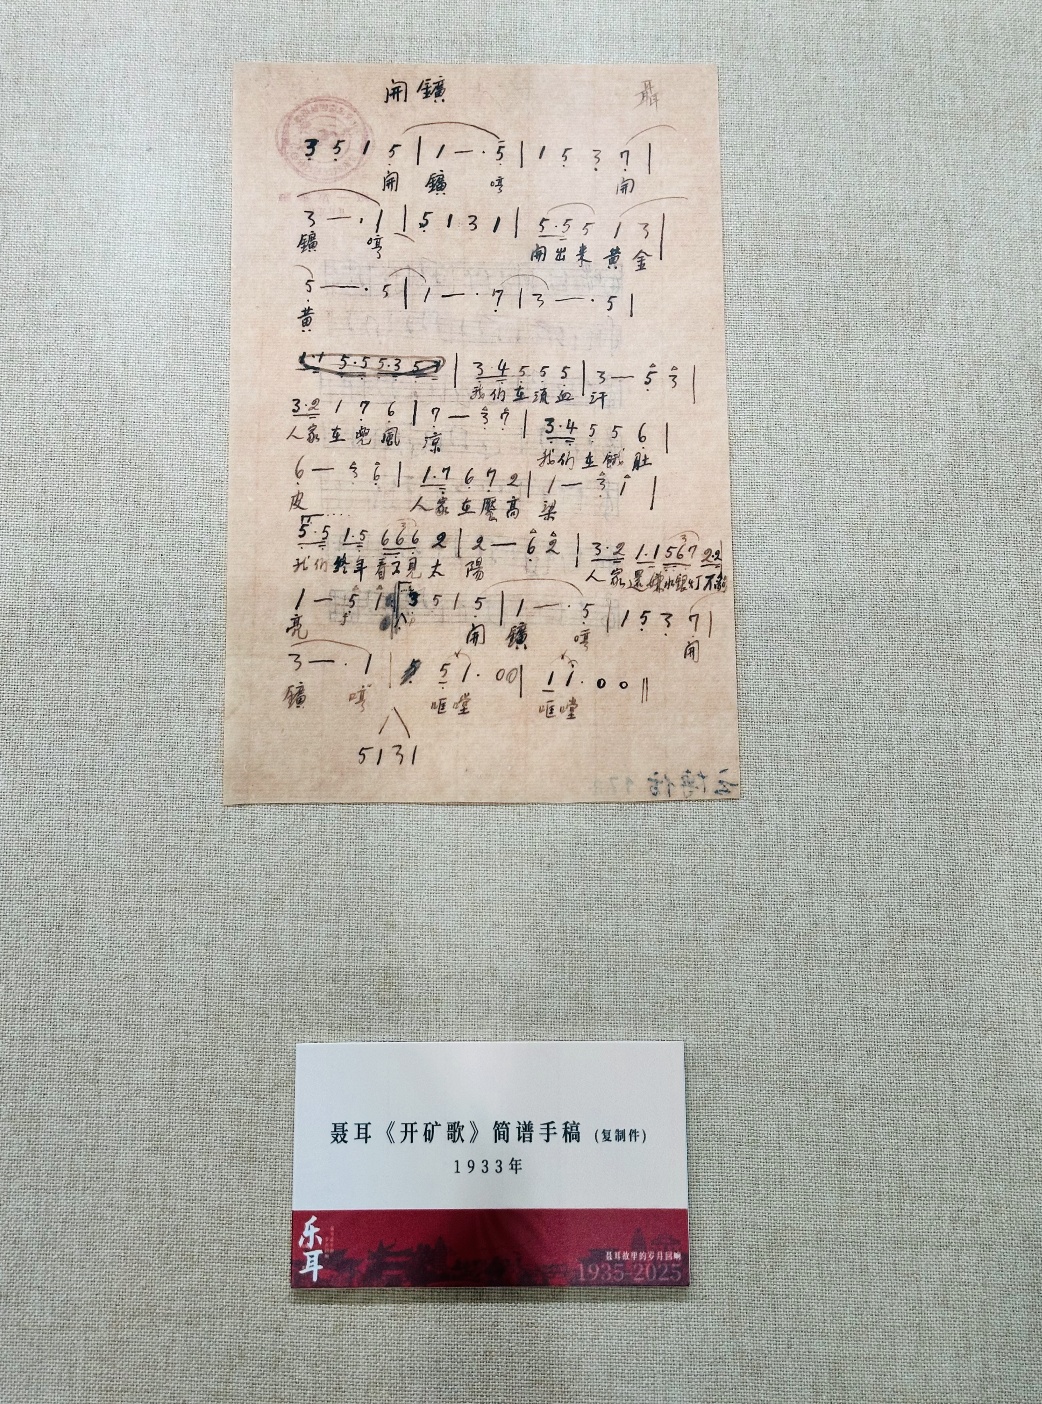 開鑛
聶
3 5 1 5 | 1 — · 5 | 1 5 3 7 |
開 鑛 哼 開
3 — · 1 | 5 1 3 1 | 5·5 5 1 3 |
鑛 哼 開出来 黄金
5 — · 5 | 1 — · 7 | 3 — · 5 |
黄
1·1 5·5 5·3 5 | 3·4 5 5 5 | 3 — 5 3 |
我们在流血 汗
3·2 1 7 6 | 7 — 3 7 | 3·4 5 5 6 |
人家在兜風 凉 我们在餓肚
6 — 3 6 | 1·7 6 7 2 | 1 — 3 1 |
皮 人家在壓高 梁
5·5 1·5 666 2 | 2 — 6 2 | 3·2 1·1 567 22
我们终年看不見太 陽 人家還嫌水銀灯不夠
1 — 5 1 3 5 1 5 | 1 — · 5 | 1 5 3 7 |
亮 開 鑛 哼 開
3 — · 1 | 5 1· 0 0 | 1 1· 0 0 ‖
鑛 哼 哐噹 哐噹
5 1 3 1
聂耳《开矿歌》简谱手稿 (复制件)
1933年
乐耳
聂耳故里的岁月回响
1935-2025